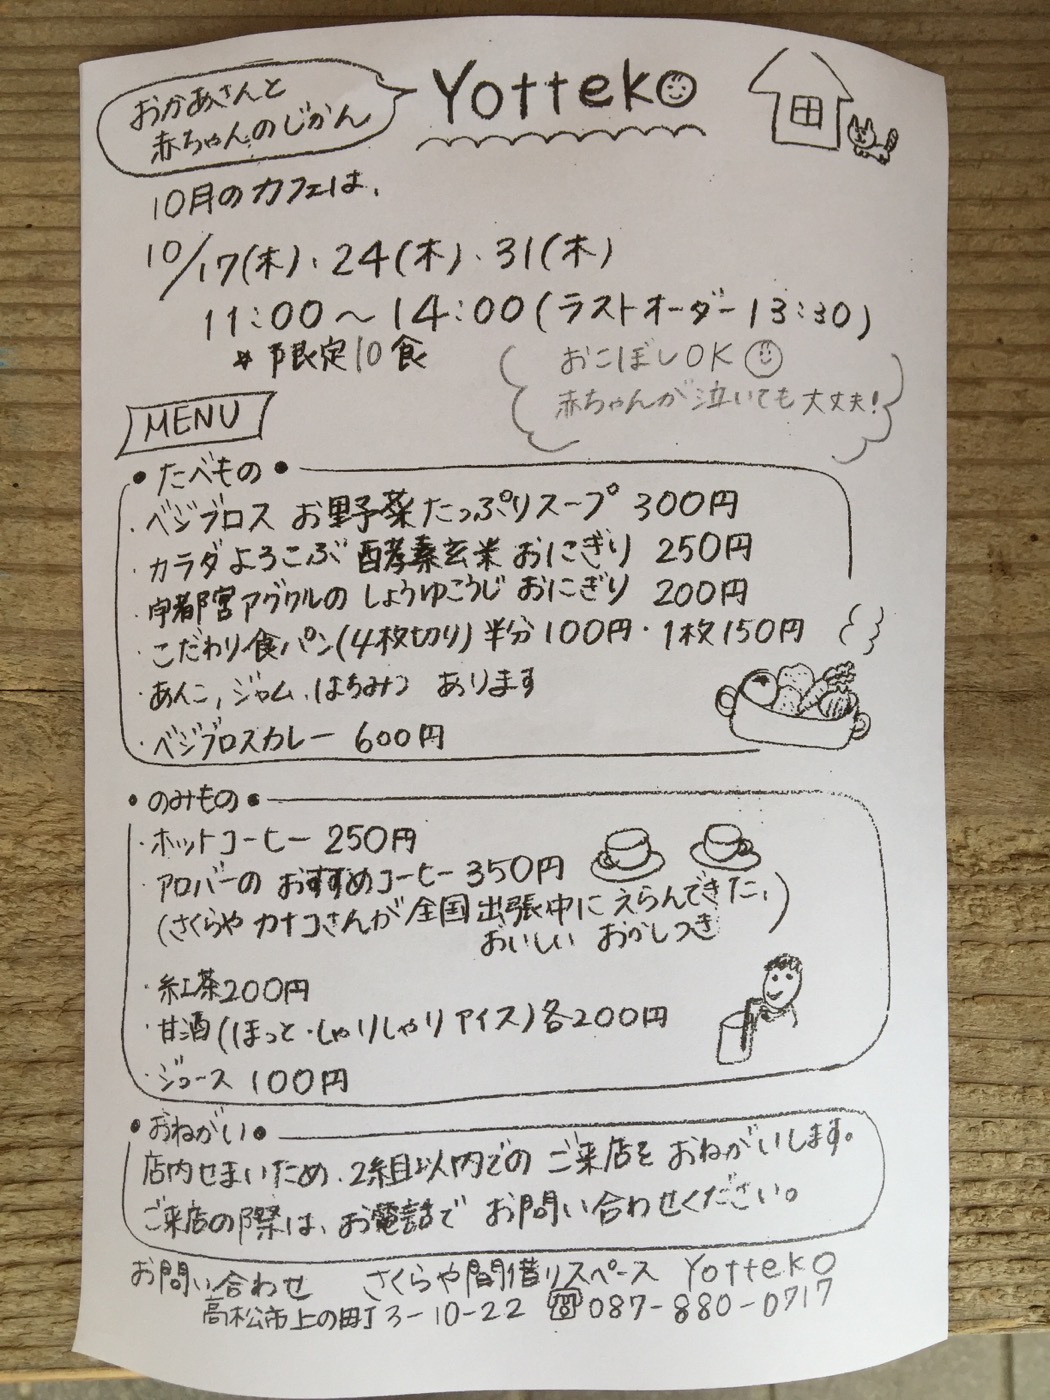 おかあさんと
赤ちゃんのじかん
Yotteko
10月のカフェは、
10/17(木)、24(木)、31(木)
11:00〜14:00(ラストオーダー13:30)
*限定10食
おこぼしOK
赤ちゃんが泣いても大丈夫!
MENU
•たべもの•
・ベジブロス お野菜たっぷりスープ 300円
・カラダよろこぶ 酵素玄米 おにぎり 250円
・宇都宮アグリクルの しょうゆこうじ おにぎり 200円
・こだわり食パン(4枚切り)半分100円・1枚150円
・あんこ、ジャム、はちみつ あります
・ベジブロスカレー 600円
•のみもの•
・ホットコーヒー 250円
・アロバーの おすすめコーヒー 350円
(さくらや カナコさんが全国出張中に えらんできた、)
おいしい おかしつき
・紅茶200円
・甘酒(ほっと・しゃりしゃりアイス)各200円
・ジュース 100円
•おねがい•
店内せまいため、2組以内での ご来店を おねがいします。
ご来店の際は、お電話で お問い合わせください。
お問い合わせ さくらや間借りスペース Yotteko
高松市上の町丁3-10-22 ☎087-880-0717